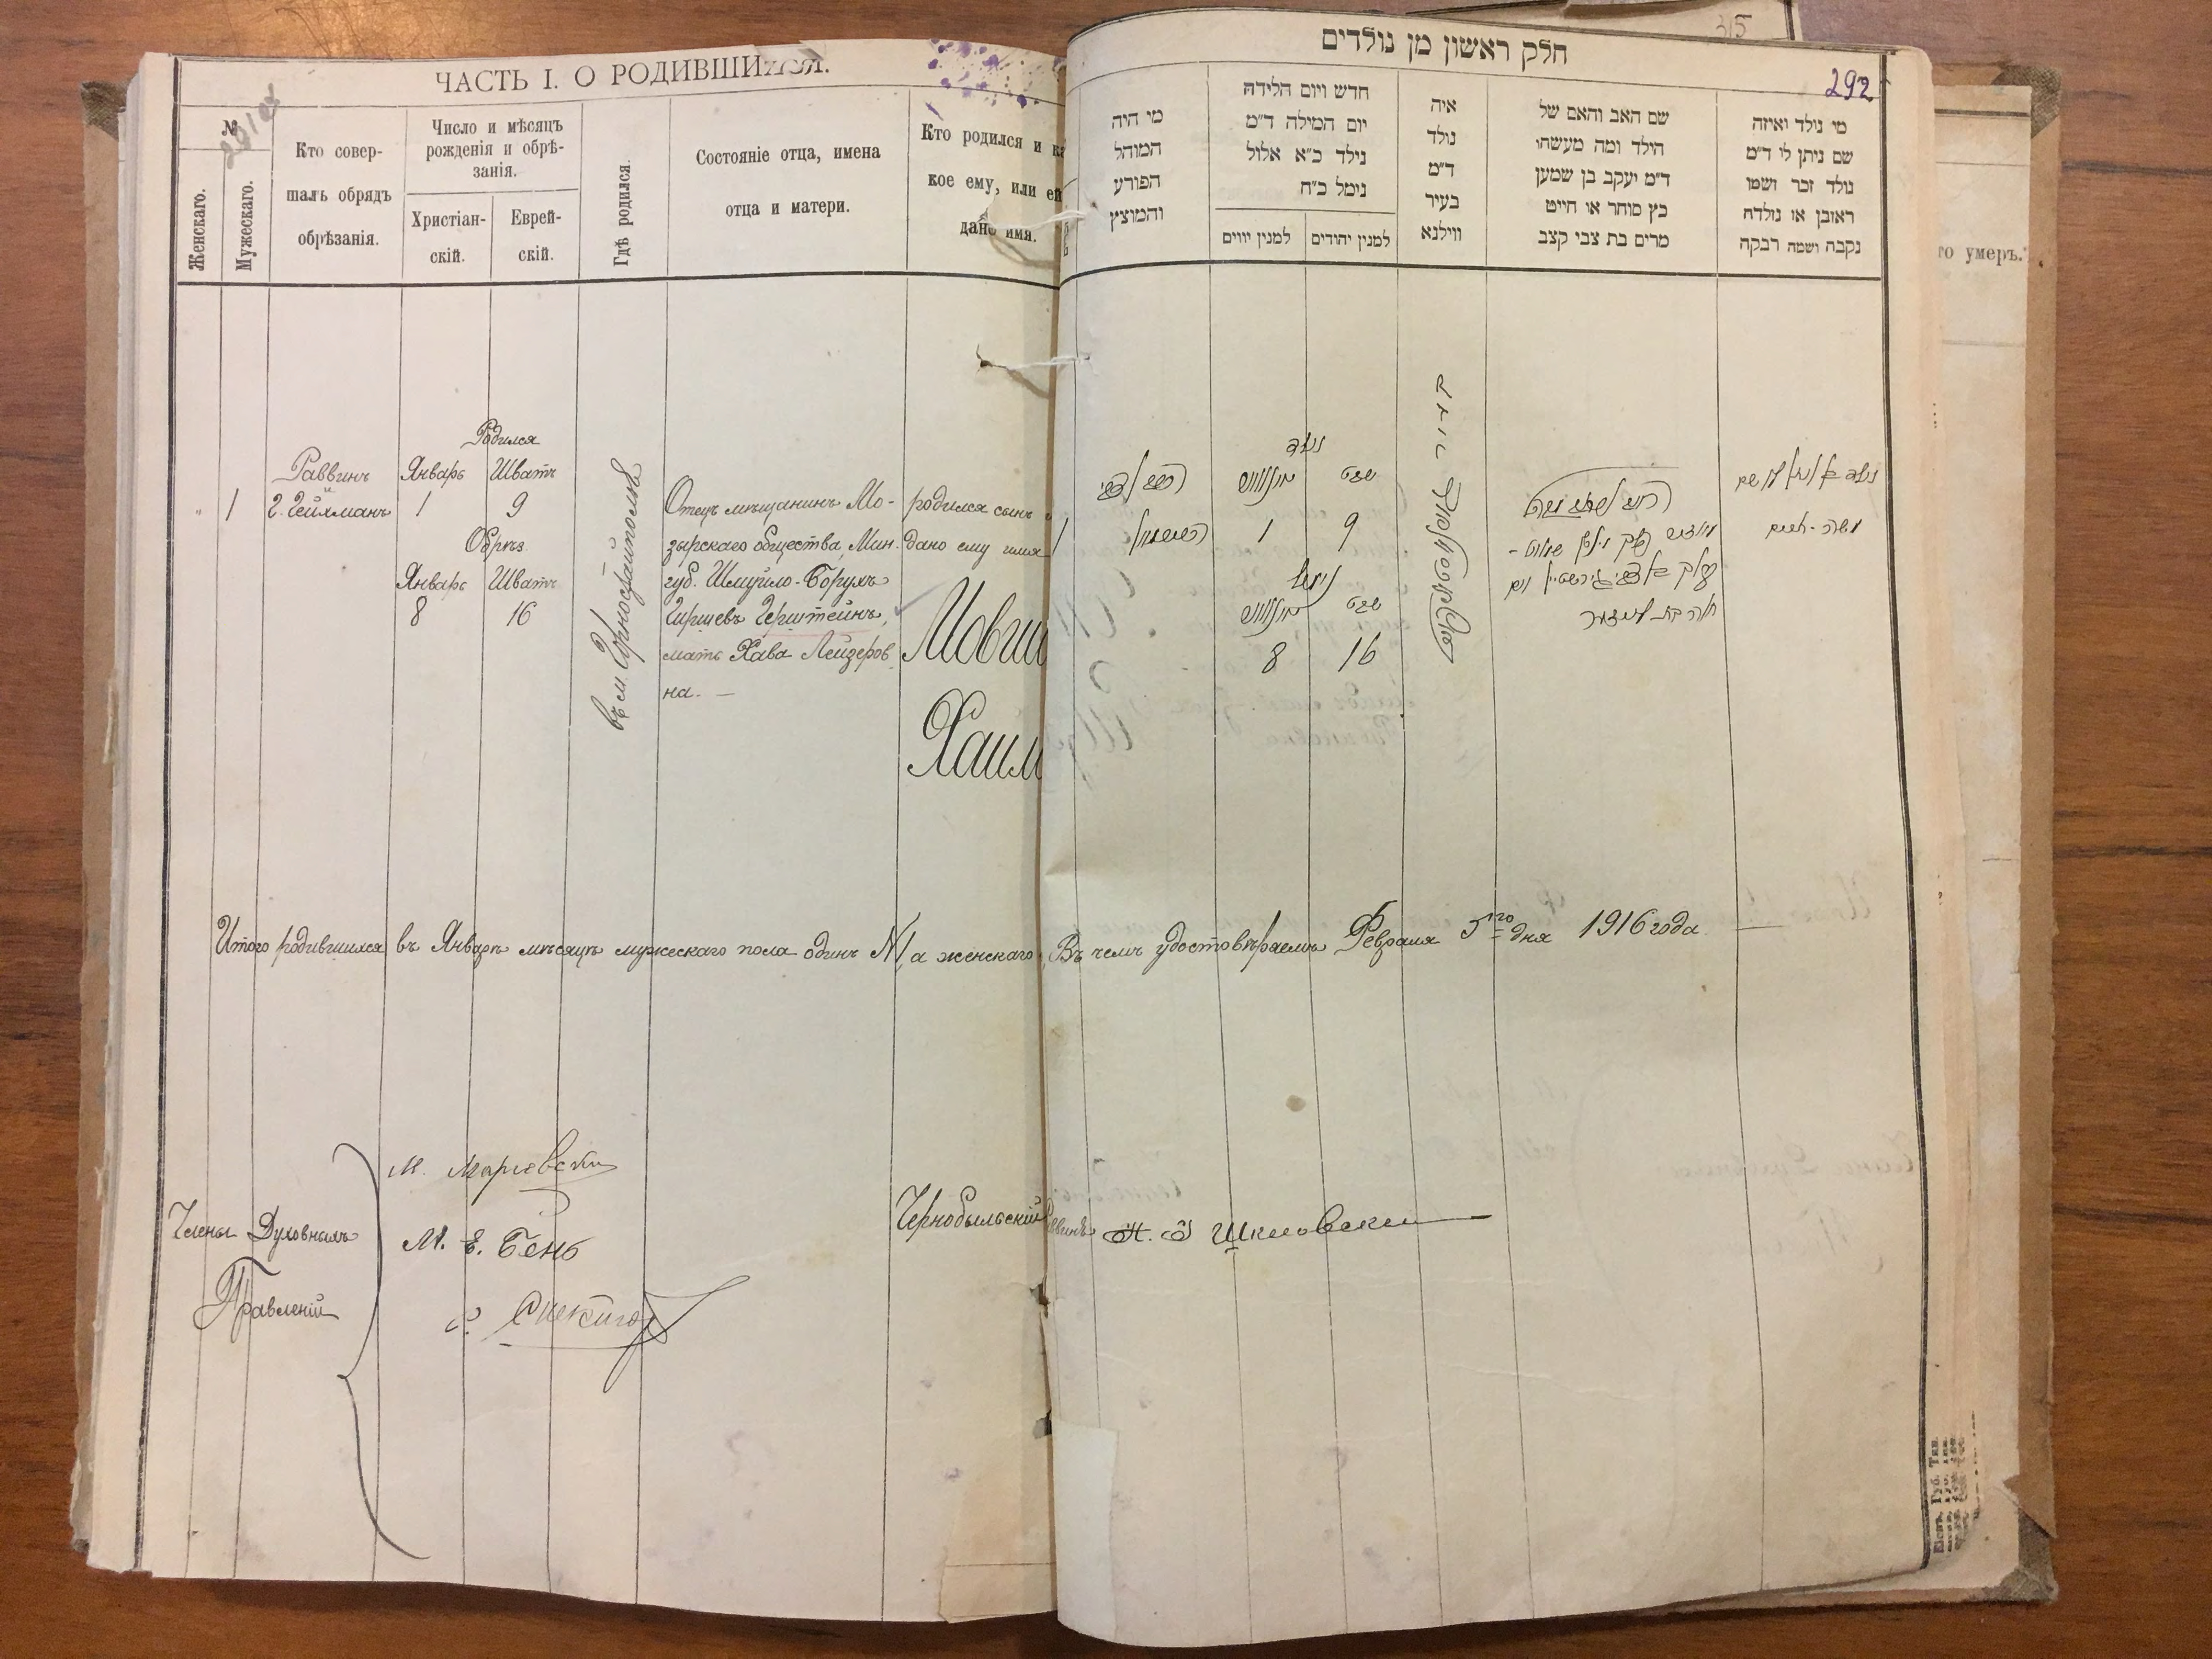 ЧАСТЬ I. О РОДИВШИХСЯ.
№
Женскаго.
Мужескаго.
Кто совер-
шалъ обрядъ
обрѣзанія.
Число и мѣсяцъ
рожденія и обрѣ-
занія.
Христіан-
скій.
Еврей-
скій.
Гдѣ родился.
Состояніе отца, имена
отца и матери.
Кто родился и ка
кое ему, или ей
дано имя.
Родился
Раввинъ Январь Шватъ
1 Г. Гейхманъ 1 9
Обрѣз.
Январь Шватъ
8 16
въ м. Горностайполѣ
Отецъ мѣщанинъ Мо-
зырскаго общества, Мин.
губ. Шмуйло-Борухъ
Гиршевъ Герштейнъ,
мать Хава Лейзеров
на. —
родился сынъ
дано ему имя
Мовш
Хаим
Итого родившихся въ Январѣ мѣсяцѣ мужескаго пола одинъ №1, а женскаго
Члены Духовныхъ
Правленій
М.
М. Е. Бень
Чернобыльскій
315
292
חלק ראשון מן נולדים
מי נולד ואיזה
שם ניתן לו ד״מ
נולד זכר ושמו
ראובן או נולדה
נקבה ושמה רבקה
שם האב והאם של
הילד ומה מעשהו
ד״מ יעקב בן שמען
כץ סוחר או חייט
מרים בת צבי קצב
איה
נולד
ד״מ
בעיר
ווילנא
חדש ויום הלידה
יום המילה ד״מ
נילד כ״א אלול
נימל כ״ח
למנין יהודים
למנין יווים
מי היה
המוהל
הפורע
והמוצץ
נולד
שבט
9
1
1
נימול
שבט
16
8
משה-חיים
Въ чемъ удостовѣряемъ Февраля 5го дня 1916 года.
Шкловскій
то умеръ.
Кіевъ, Губ. Тип.